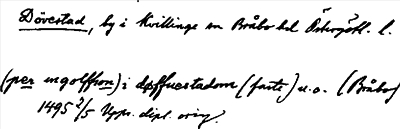 Dövestad, by i Kvillinge sn Bråbo hd Östergötl. l.
(per ingolffson) i døffuestadom (faste) u.o. (Bråbo)
1495 2/5 Upps. dipl. orig.